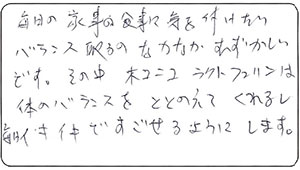 毎日の家事的食事に気を付けたい
バランス取るのなかなかむずかしい
です。その中 ラクトフェリンは
体のバランスをととのえてくれるし
毎日 ですごせるようにします。